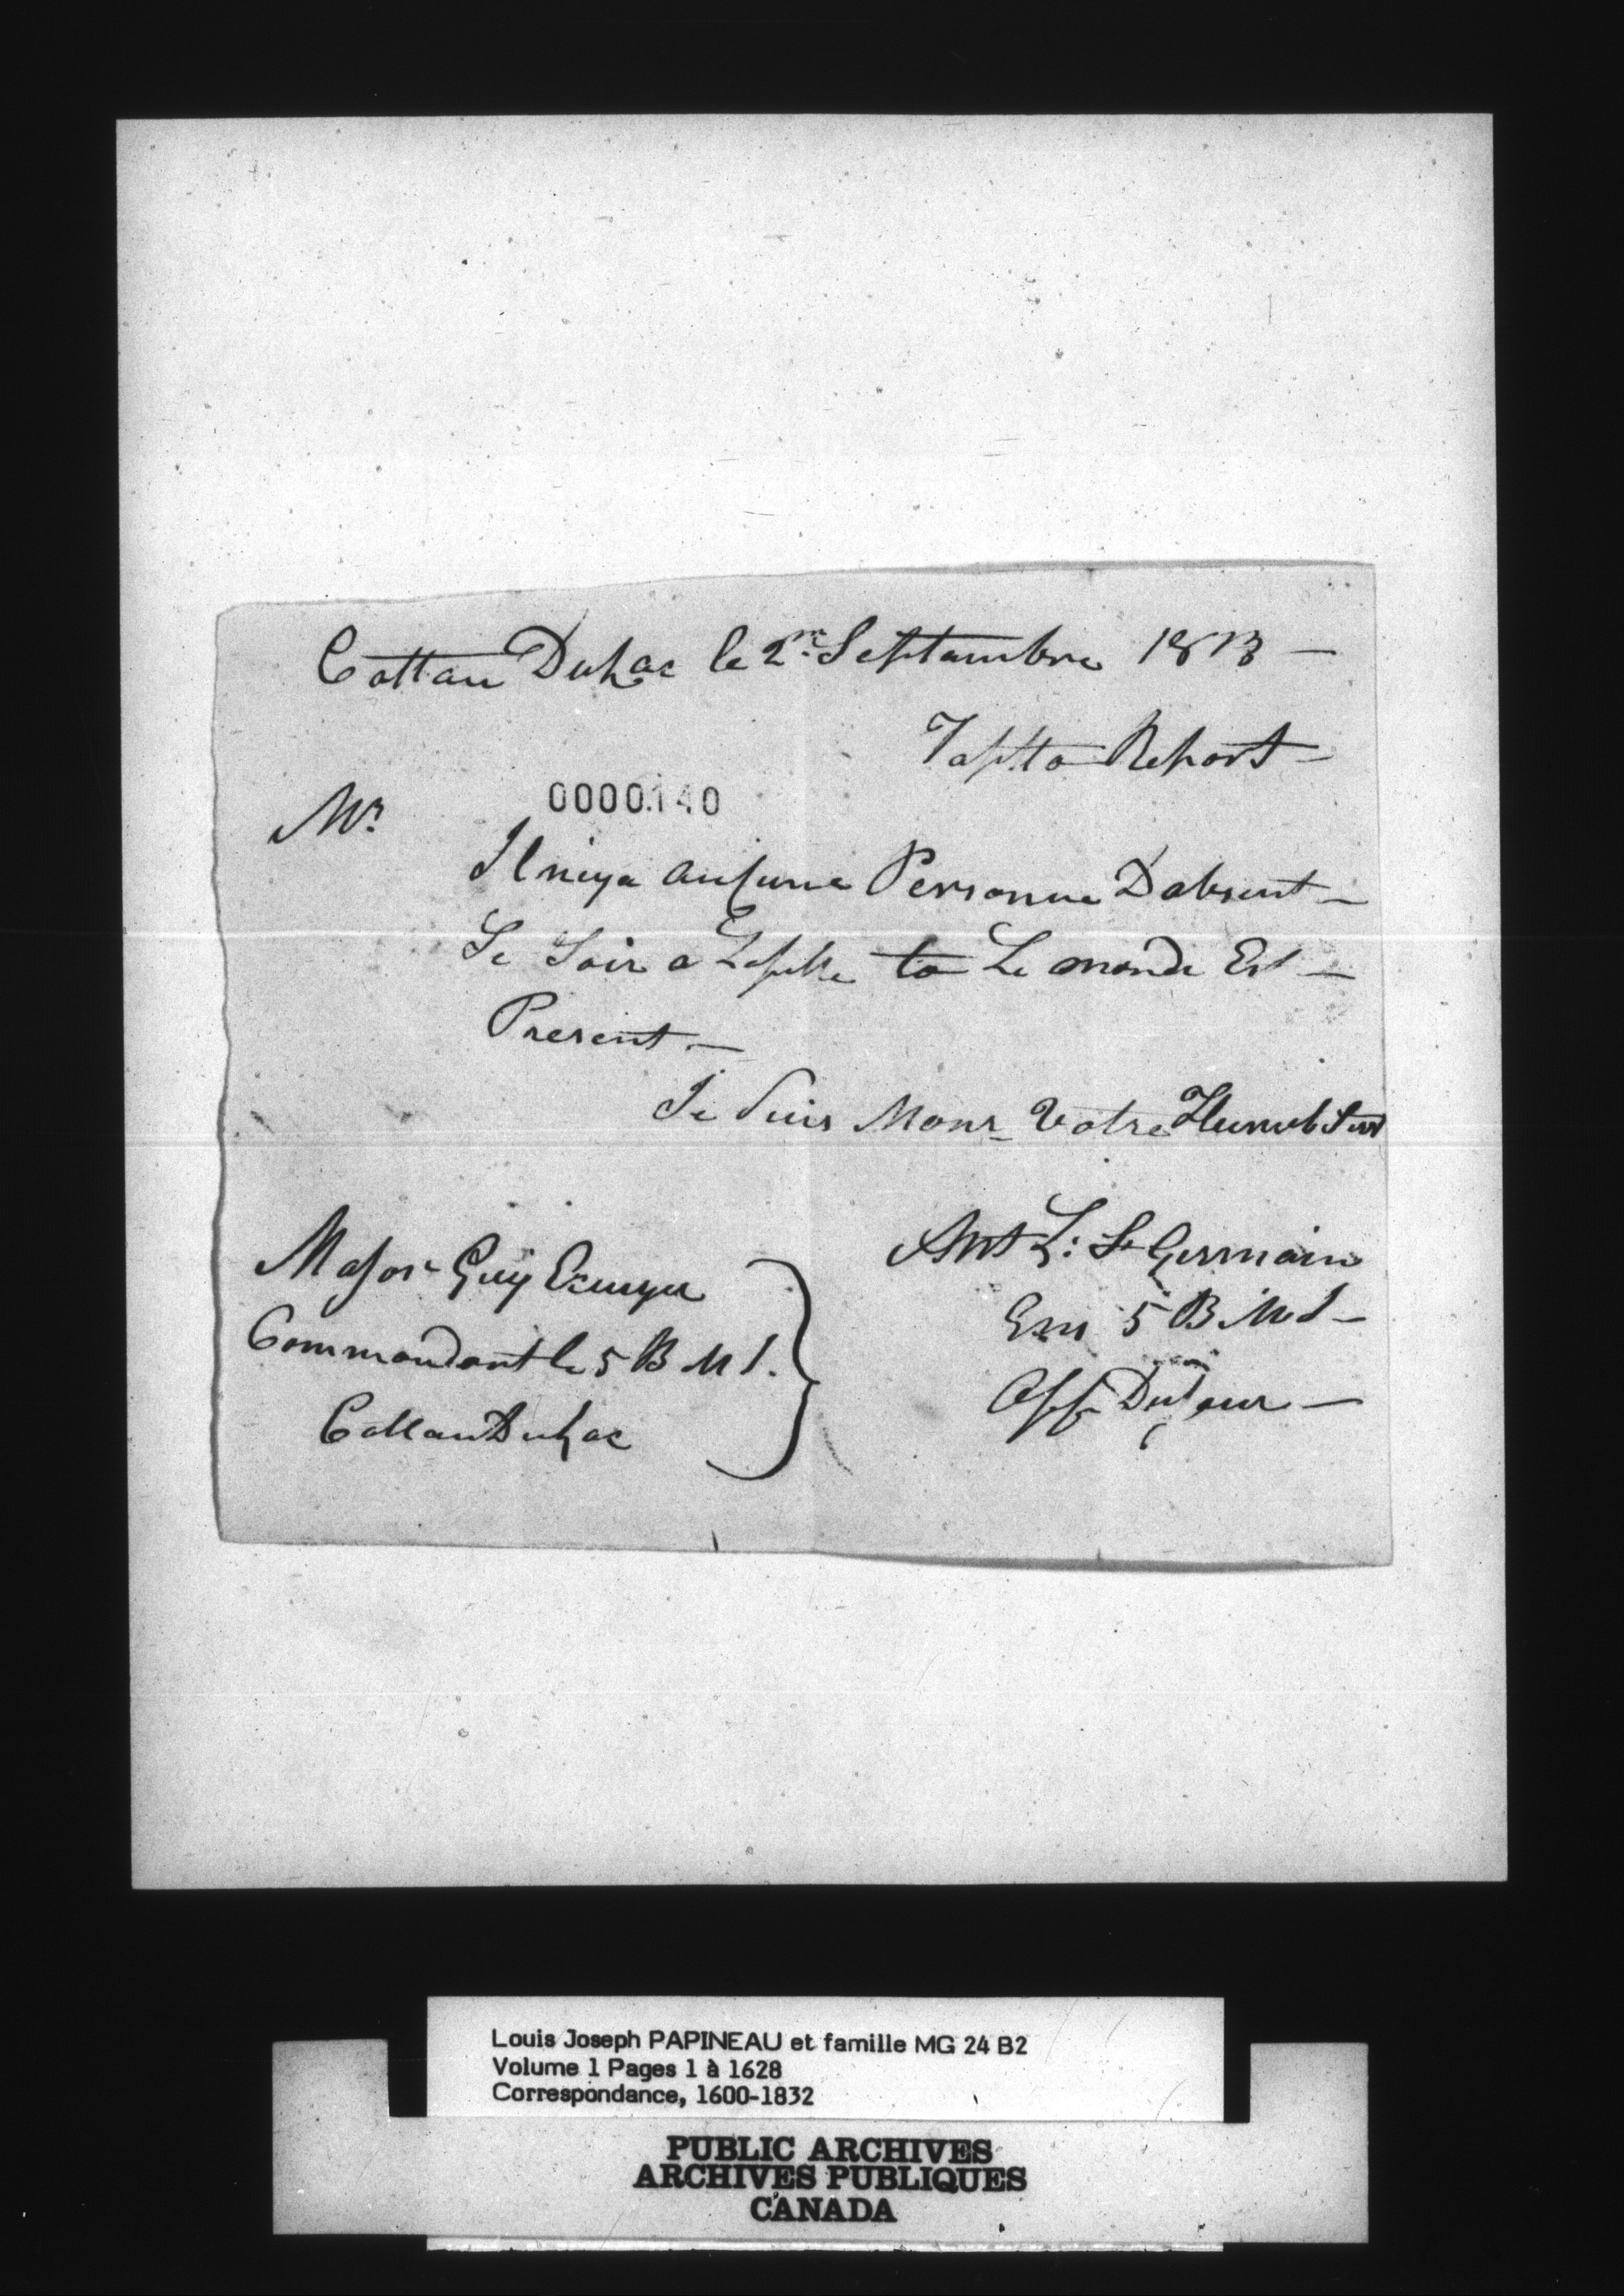 Cottau Dulac le 2me Septambre 1813 —
Tapto Report —
0000140
Mr
Il niya aucune Personne D'absent —
Se Soir a Lapelle to Le monde Est —
Present —
Je Suis Monsr Votre Humbl Serv
Major Guy Ecuyer
Commandant le 5 B M I.
Cottau Dulac
Ant L: St Germain
Ens 5 B M I —
Off Du Jour —
Louis Joseph PAPINEAU et famille MG 24 B2
Volume 1 Pages 1 à 1628
Correspondance, 1600-1832
PUBLIC ARCHIVES
ARCHIVES PUBLIQUES
CANADA